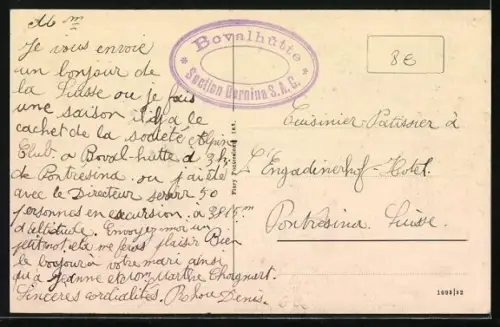 Je vous envoie
un bonjour de
la Suisse ou je fais
une saison il y a le
cachet de la société Alpin
Club. a Boval-hütte d 3h
de Pontresina. ou j'ai été
avec le Directeur servir 50
personnes en excursion. a 3815m
d'altitude. Envoyez moi un
petit mot, cela me ferais plaisir Bien
le bonjour à votre mari ainsi
qu'a Jeanne et Marthe
Sincères cordialités. Denis.
Bovalhütte
* Section Bernina S.A.C. *
8€
Cuisinier-Patissier à
L'Engadinerhof-Hotel.
Pontresina. Suisse.